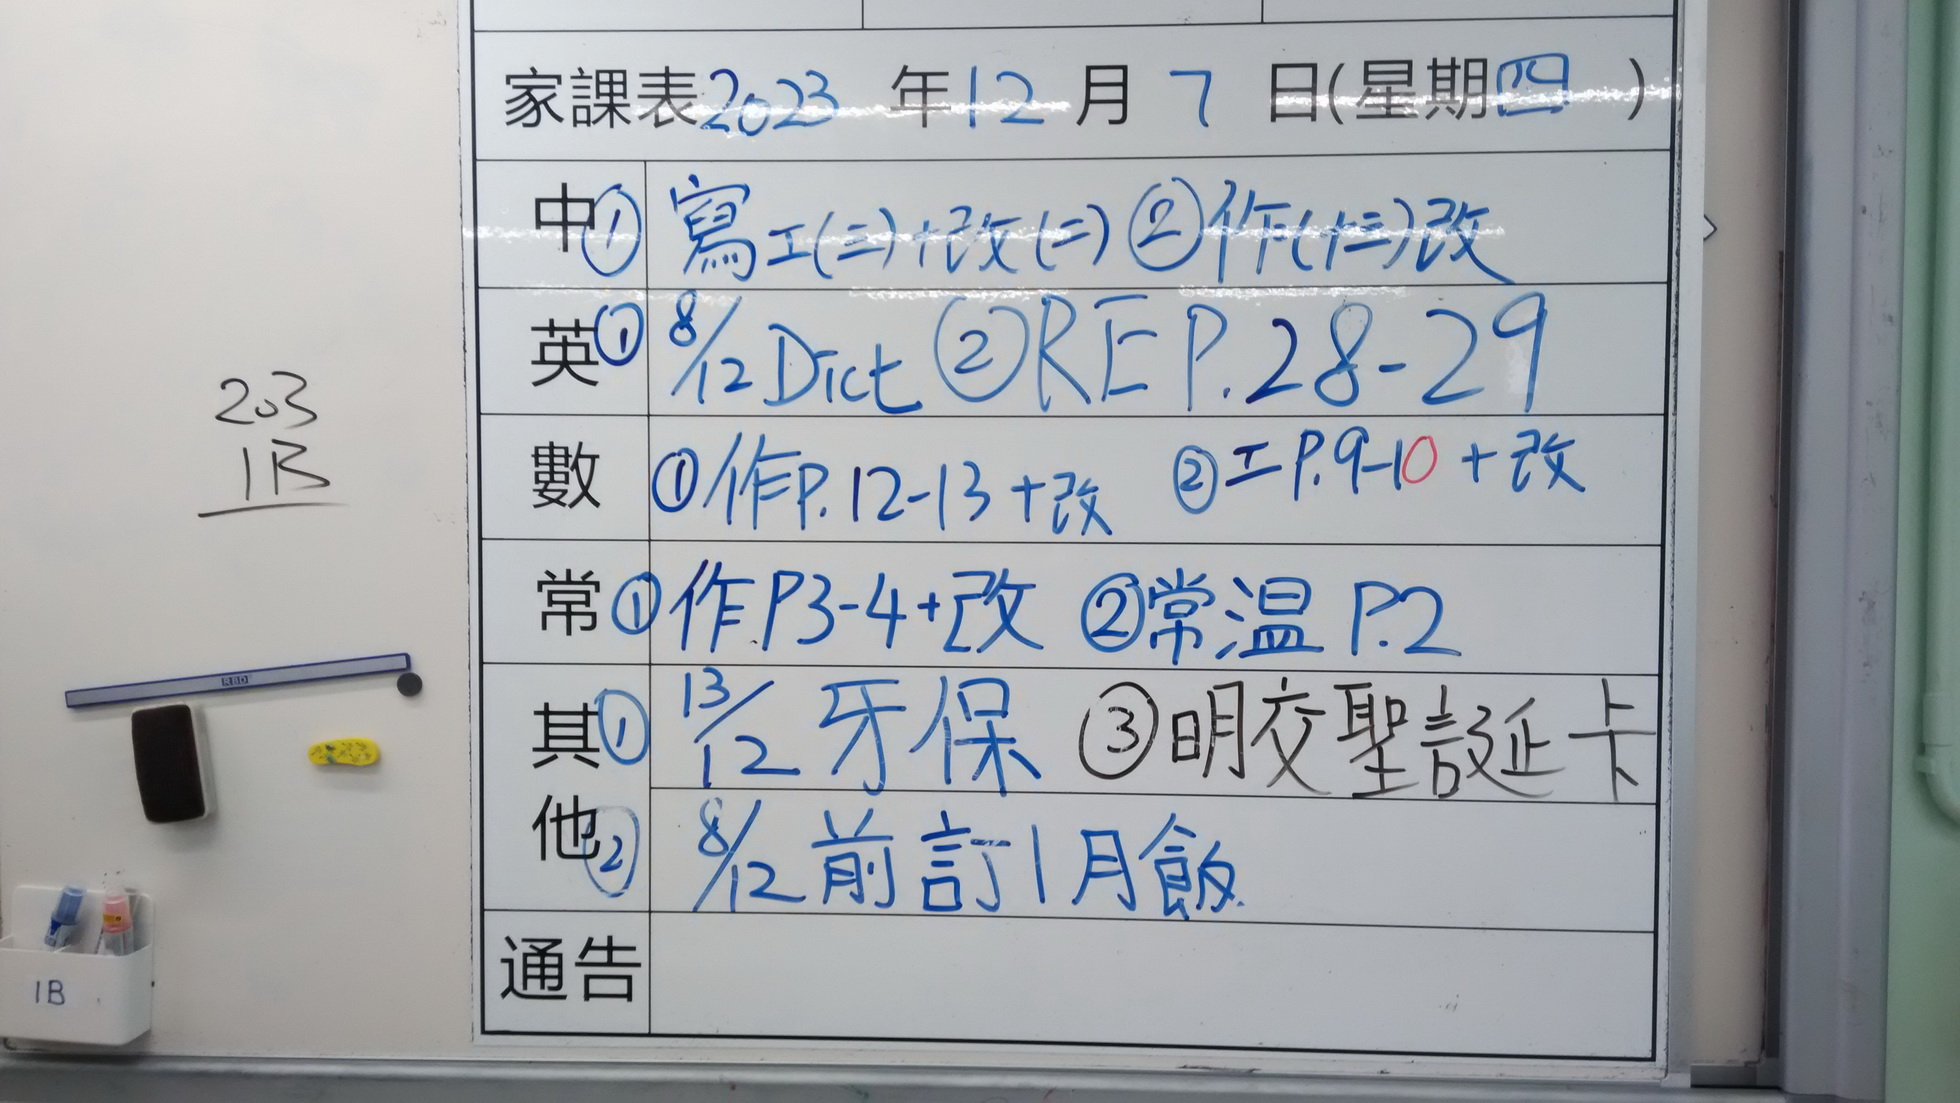 家課表2023年12月7日(星期四)
中① 寫工(三)+改(二) ②作(十三)改
英① 8/12 Dict ②RE P.28-29
數 ①作P.12-13+改 ②工P.9-10+改
常① 作P3-4+改 ②常溫 P.2
其他① 13/12 牙保 ③明交聖誕卡
② 8/12前訂1月飯
通告
203
1B
RBD
1B